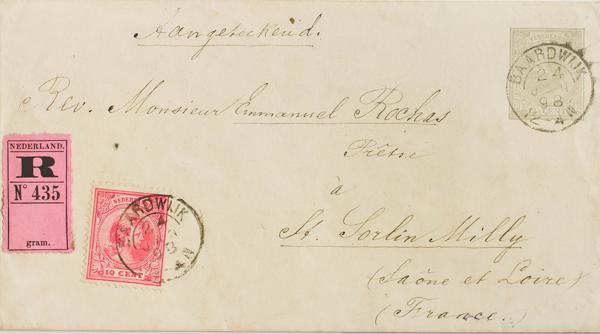 Aangeteekend.
NEDERLAND
BAARDWIJK
24
98
12 4 N
Rev. Monsieur Emmanuel Rochas
Prêtre
à
St. Sorlin Milly
(Saône et Loire)
(France.)
NEDERLAND.
R
No 435
gram.
BAARDWIJK
24
98
10 CENT